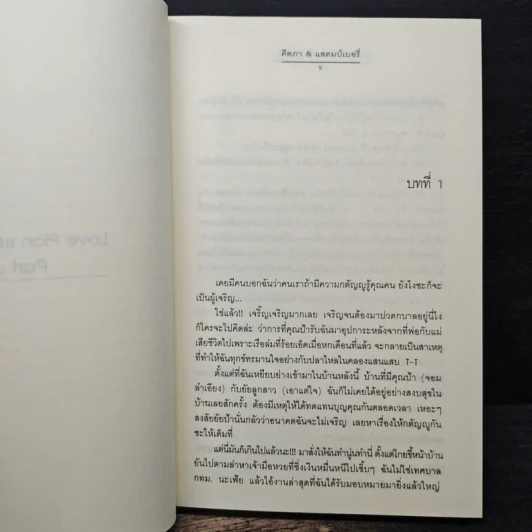 คีตภา & แสตมป์เบอรี่
๙
บทที่ 1
Love Plan
Part
เคยมีคนบอกฉันว่าคนเราถ้ามีความกตัญญูรู้คุณคน ยังไงซะก็จะ
เป็นผู้เจริญ...
ใช่แล้ว!! เจริ๊ญเจริญมากเลย เจริญจนต้องมาปวดกบาลอยู่นี่ไง
ก็ใครจะไปคิดล่ะ ว่าการที่คุณป้ารับฉันมาอุปการะหลังจากที่พ่อกับแม่
เสียชีวิตไปเพราะเรือล่มที่ร้อยเอ็ดเมื่อหกเดือนที่แล้ว จะกลายเป็นสาเหตุ
ที่ทำให้ฉันทุกข์ทรมานใจอย่างกับปลาไหลในคลองแสนแสบ T-T
ตั้งแต่ที่ฉันเหยียบย่างเข้ามาในบ้านหลังนี้ บ้านที่มีคุณป้า (จอม
ลำเอียง) กับยัยลูกสาว (เอาแต่ใจ) ฉันก็ไม่เคยได้อยู่อย่างสงบสุขใน
บ้านเลยสักครั้ง ต้องมีเหตุให้ได้ทดแทนบุญคุณกันตลอดเวลา เหอะๆ
สงสัยยัยป้านั่นกลัวว่าอนาคตฉันจะไม่เจริญ เลยหาเรื่องให้กตัญญูกัน
ซะให้เต็มที่
แต่นี่มันก็เกินไปแล้วนะ!!! มาสั่งให้ฉันทำนู่นทำนี่ ตั้งแต่โกยขี้หน้าบ้าน
ยันไปตามล่าหาเจ้ามือหวยที่ชิ่งเงินหมื่นหนีไปเชิบๆ ฉันไม่ใช่เทศบาล
กทม. นะเฟ้ย แล้วไอ้งานล่าสุดที่ฉันได้รับมอบหมายมายิ่งแล้วใหญ่